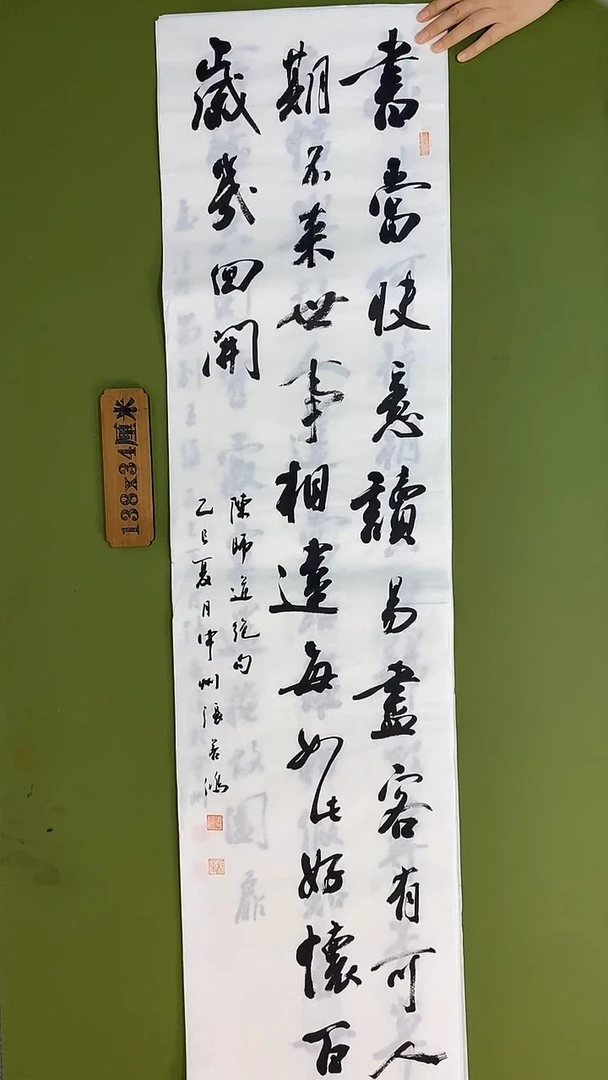 書當快意讀易盡客有可人
期不来世事相違每如此好懷百
歲幾回開
陳師道絶句
乙巳夏月中州張若鴻
138x34厘米